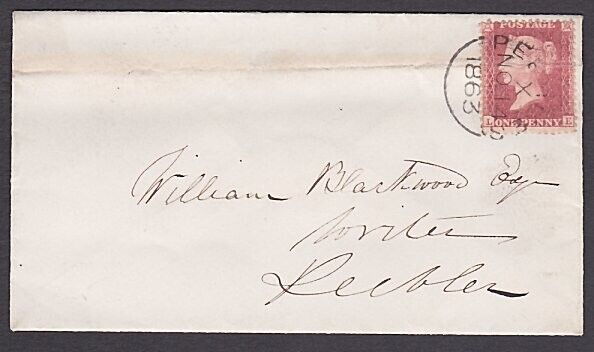 POSTAGE
ONE PENNY
L E
PEEBLES
X
NO 14
1863
William Blackwood Esqr
Writer
Peebles